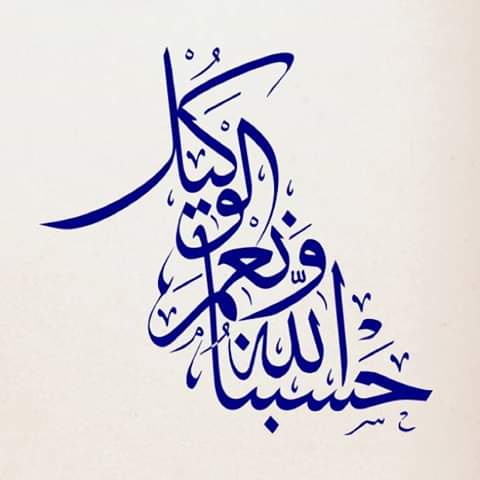 حَسْبُنَا اللّٰه
وَنِعْمَ
الْوَ
كِيلُ